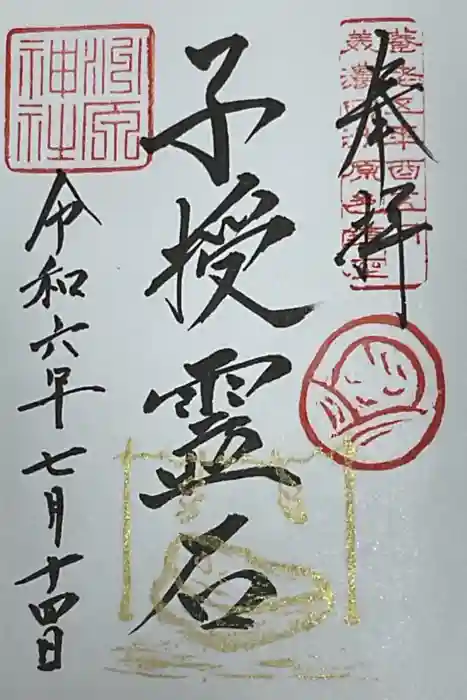 奉拝
子授霊石
令和六年七月十四日
洲原
神社